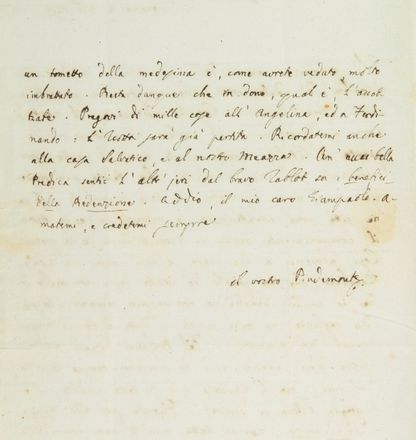 un tometto della medesima è, come avrete veduto, molto
imbrattato. Resta dunque che in dono, qual è l'accet
tiate. Pregovi di mille cose all'Angelina, ed a Ferdi
nando: l' sarà già partita. Ricordatemi anche
alla casa e al nostro Meazza. Un' assai bella
Predica sentii l'altr'jeri dal bravo Tablot su i benefici
della Redenzione. Addio, il mio caro Giampaolo. A-
matemi, e credetemi sempre
il vostro Pindemonte